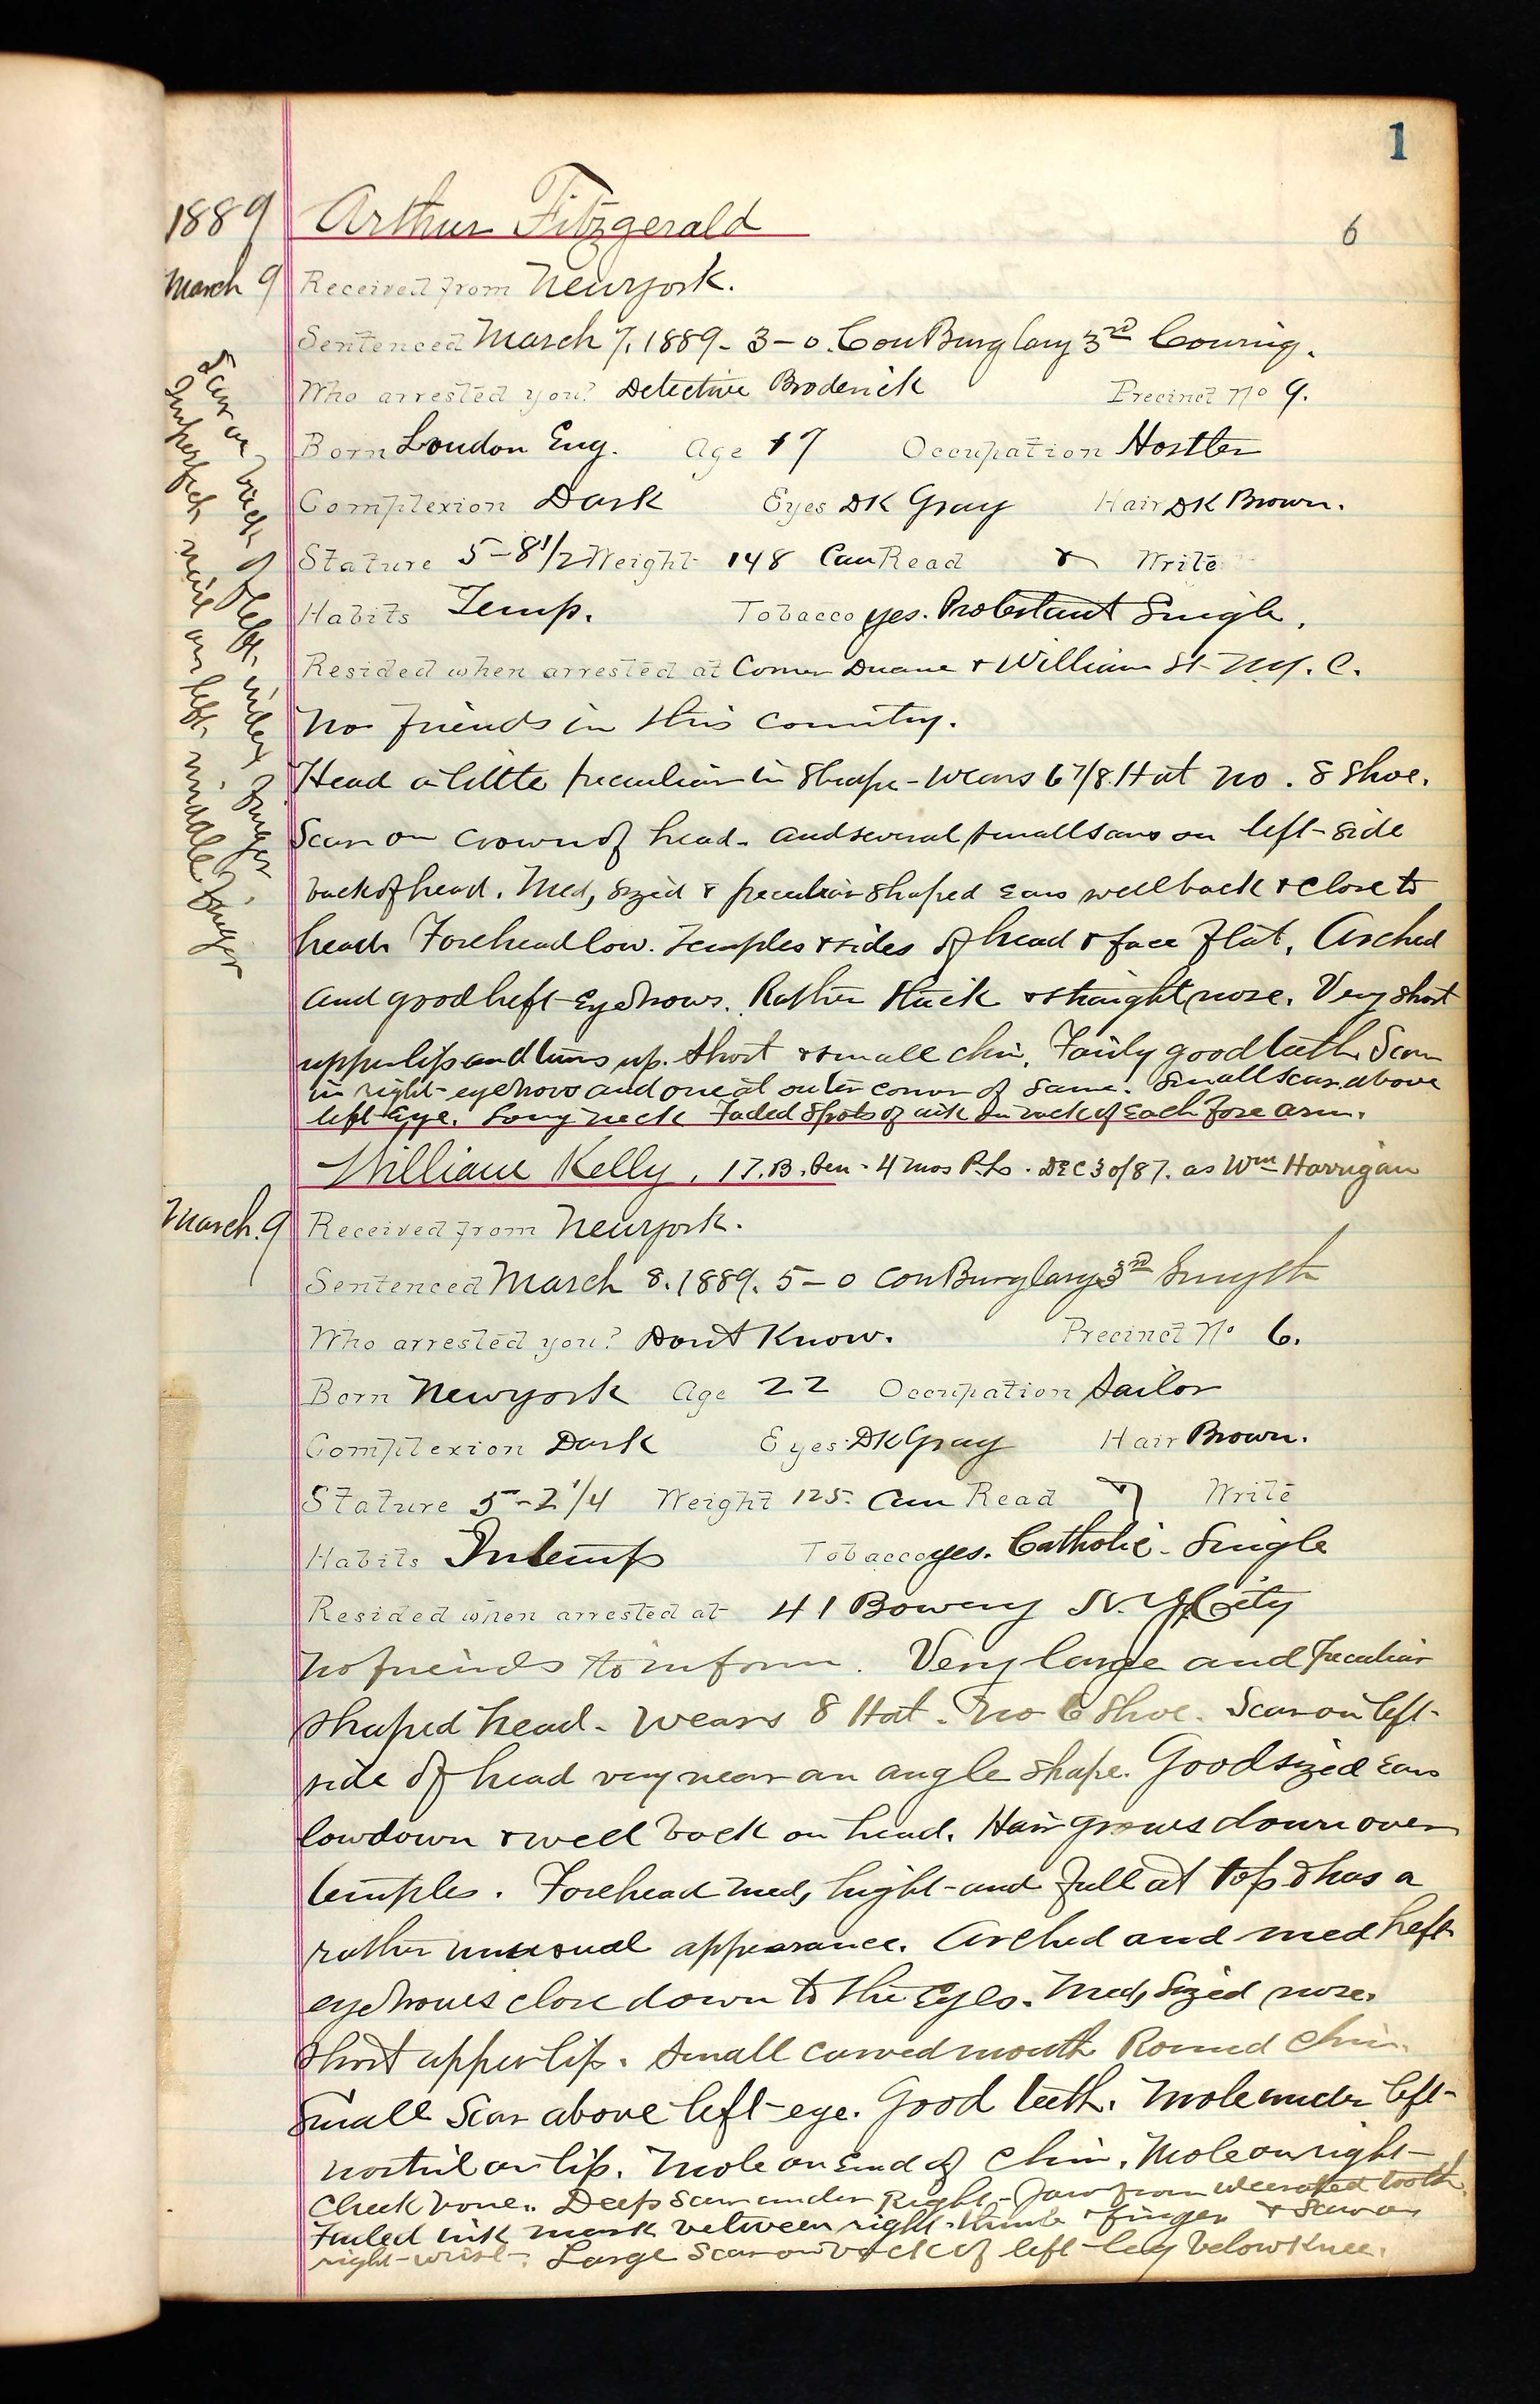 1
1889 Arthur Fitzgerald
6
March 9 Received from Newyork.
Sentenced March 7. 1889 - 3-0. Con Burglary 3rd Cowing.
Who arrested you? Detective Broderick Precinct No 9.
Born London Eng. Age 17 Occupation Hostler
Complexion Dark Eyes DK Gray Hair DK Brown.
Stature 5-8 1/2 Weight 148 Can Read & Write
Habits Temp. Tobacco yes. Protestant Single.
Resided when arrested at Corner Duane & William St N.Y. C.
No friends in this country.
Head a little peculiar in shape - wears 6 7/8 Hat No. 8 Shoe.
Scar on crown of head. and several small scars on left-side
back of head. Med, sized & peculiar shaped ears well back & close to
head. Forehead low. Temples & sides of head & face flat. Arched
and good heft Eyebrows. Rather thick & straight nose. Very short
upper lip and turns up. Short & small chin. Fairly good teeth. Scar
in right-eyebrow and one at outer corner of same. Small scar above
left-Eye. Long neck Faded spots of ink on back of each fore arm.
Scar on back of left index finger.
Imperfect nail on left middle finger
William Kelly, 17.B. Sen - 4 mos P.L. - DEC 30/87. as Wm Harrigan
March. 9 Received from Newyork.
Sentenced March 8. 1889. 5-0 Con Burglary 3rd Smyth
Who arrested you? Dont Know. Precinct No 6.
Born Newyork Age 22 Occupation Sailor
Complexion Dark Eyes DK Gray Hair Brown.
Stature 5-2 1/4 Weight 125. Can Read & Write
Habits Intemp Tobacco yes. Catholic - Single
Resided when arrested at 41 Bowery N.Y. City
No friends to inform. Very large and peculiar
shaped head - wears 8 Hat. No 6 Shoe. Scar on left-
side of head very near an angle shape. Good sized Ears
low down & well back on head. Hair grows down over
temples. Forehead med, hight-and full at top & has a
rather unusual appearance. Arched and med heft
eyebrows close down to the Eyes. Med, sized nose.
Short upper lip. Small curved mouth Round chin.
Small Scar above left-eye. Good teeth. Mole under left-
nostril on lip. Mole on End of chin. Mole on right-
cheek bone. Deep scar under Right-Jaw from ulcerated tooth.
Faded ink mark between right-thumb & finger & scar on
right-wrist-. Large scar on back of left-leg below knee.